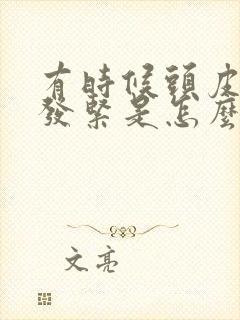 有時候頭皮
發緊是怎麼
文亮